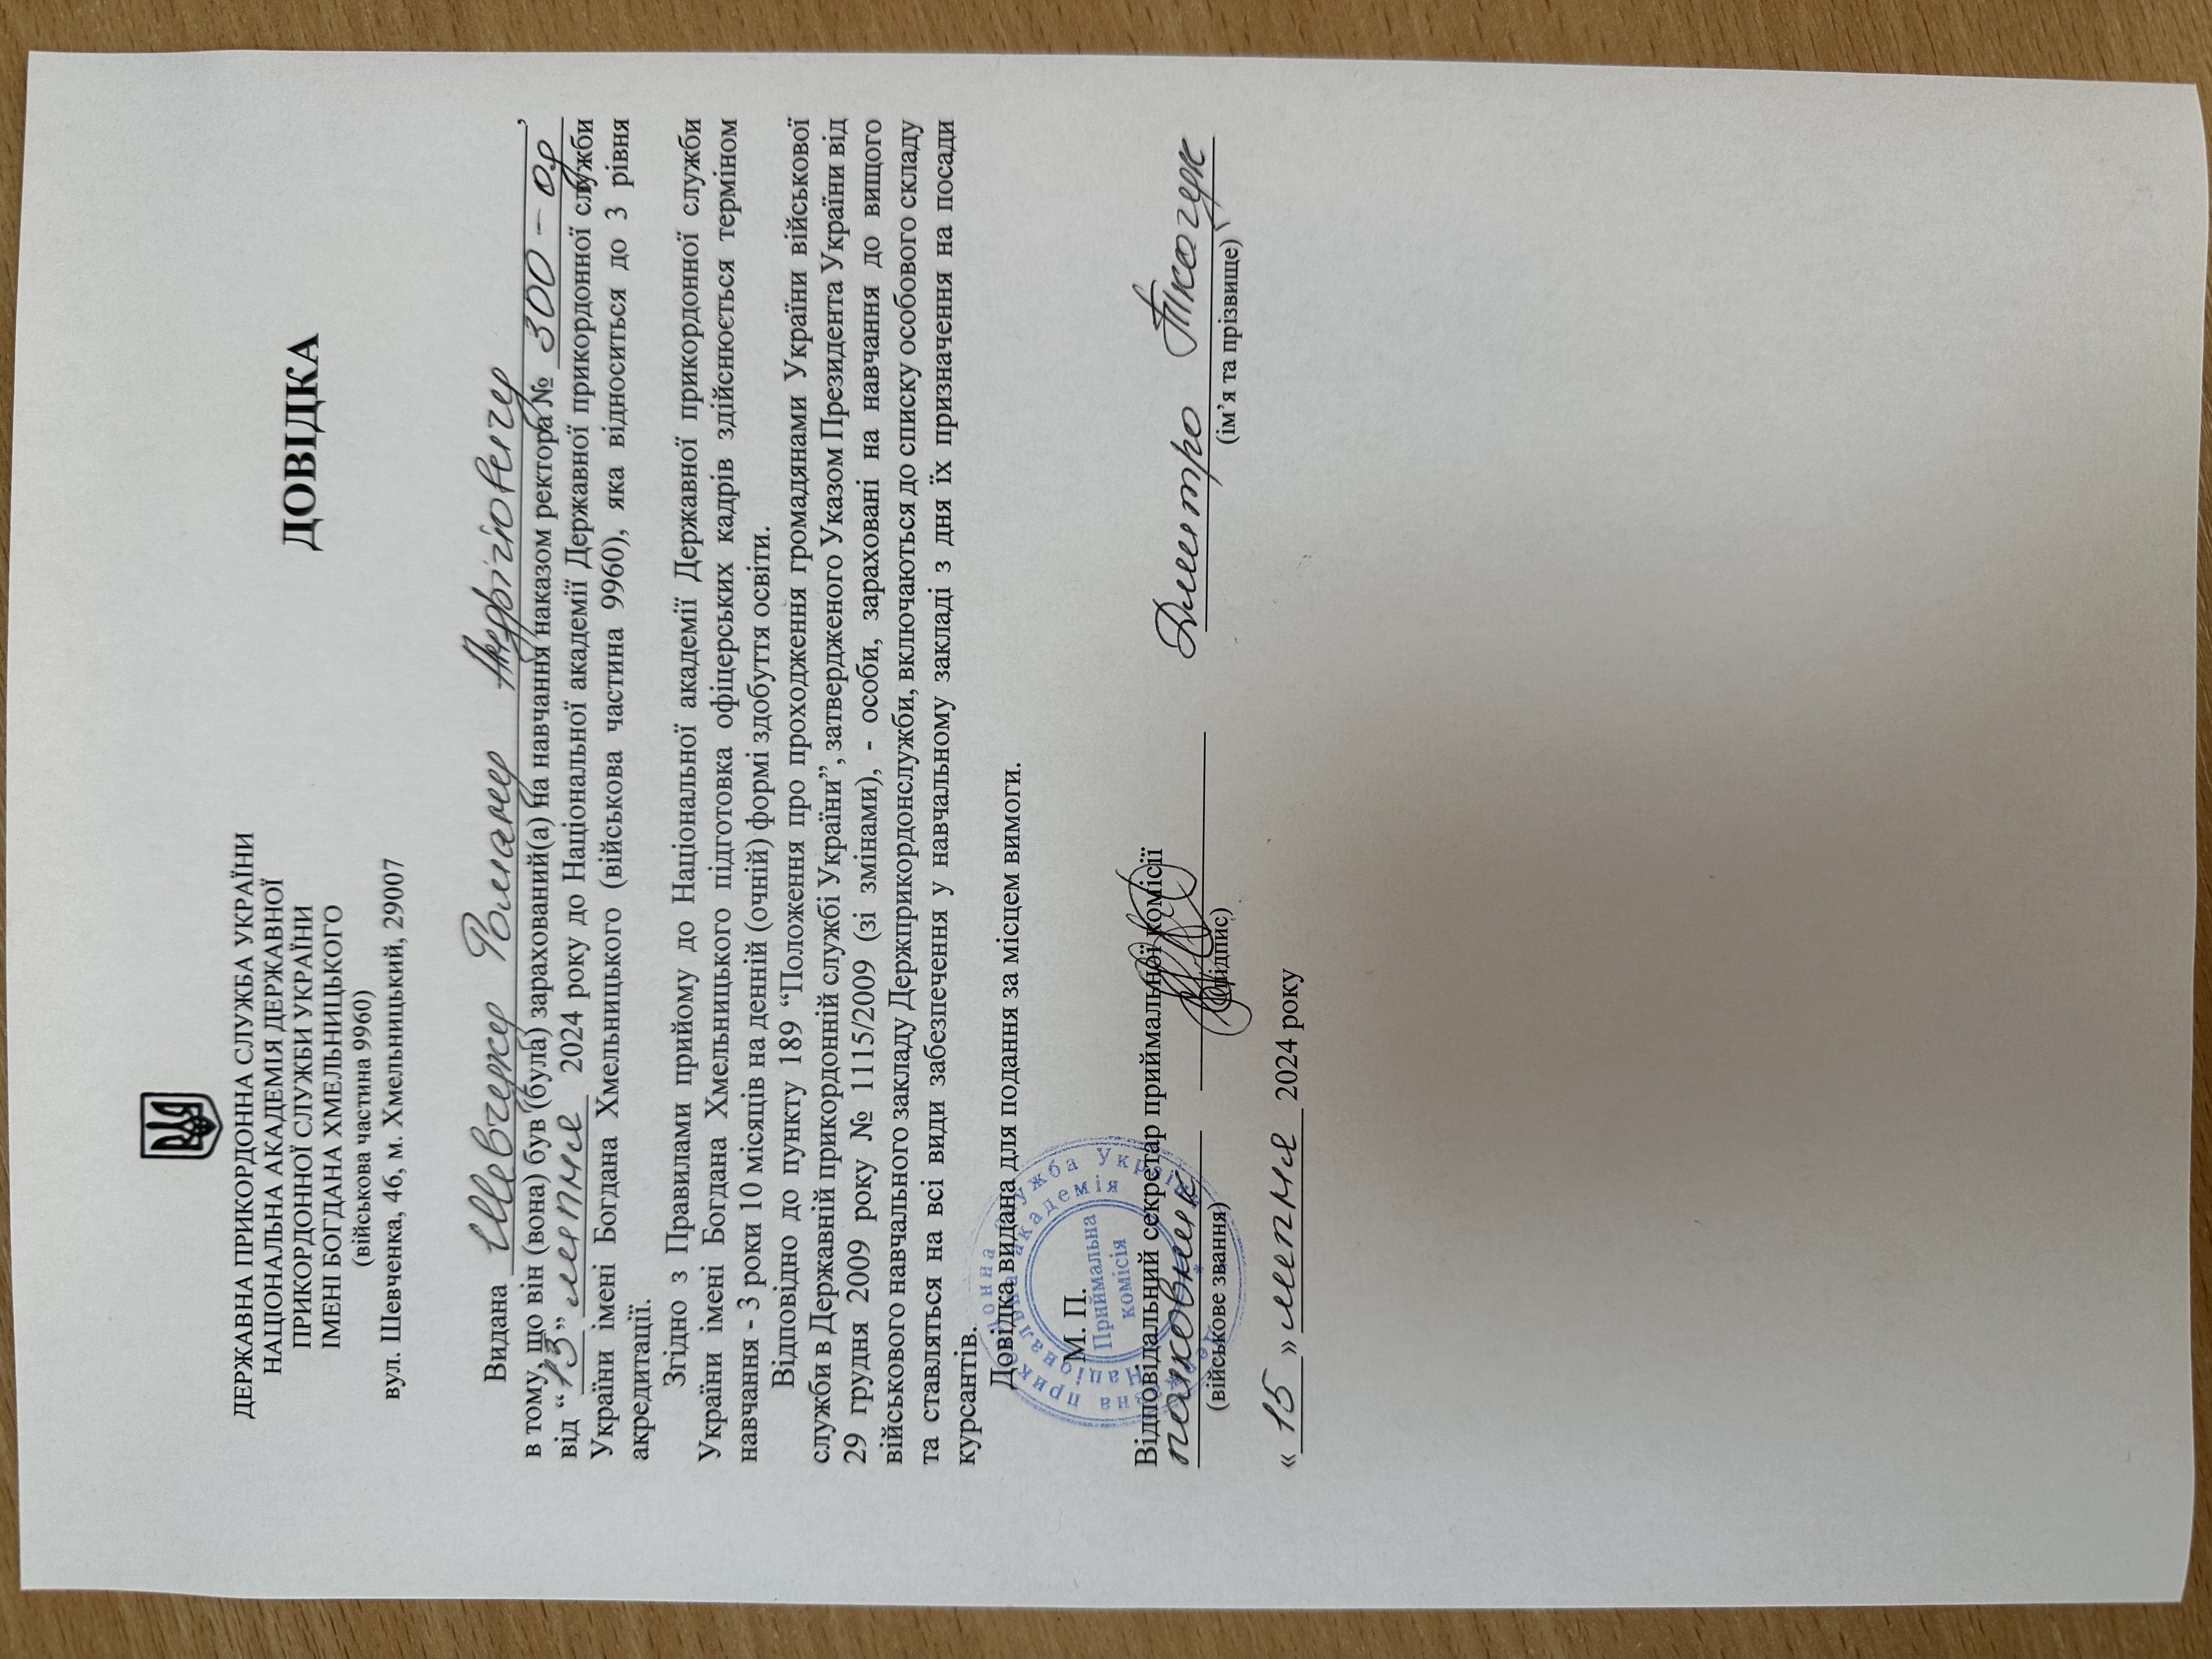 ДЕРЖАВНА ПРИКОРДОННА СЛУЖБА УКРАЇНИ
НАЦІОНАЛЬНА АКАДЕМІЯ ДЕРЖАВНОЇ
ПРИКОРДОННОЇ СЛУЖБИ УКРАЇНИ
ІМЕНІ БОГДАНА ХМЕЛЬНИЦЬКОГО
(військова частина 9960)
вул. Шевченка, 46, м. Хмельницький, 29007
ДОВІДКА
Видана Шевчуку Роману Андрійовичу,
в тому, що він (вона) був (була) зарахований(а) на навчання наказом ректора № 300 – од
від “13” липня 2024 року до Національної академії Державної прикордонної служби
України імені Богдана Хмельницького (військова частина 9960), яка відноситься до 3 рівня
акредитації.
Згідно з Правилами прийому до Національної академії Державної прикордонної служби
України імені Богдана Хмельницького підготовка офіцерських кадрів здійснюється терміном
навчання - 3 роки 10 місяців на денній (очній) формі здобуття освіти.
Відповідно до пункту 189 “Положення про проходження громадянами України військової
служби в Державній прикордонній службі України”, затвердженого Указом Президента України від
29 грудня 2009 року № 1115/2009 (зі змінами), - особи, зараховані на навчання до вищого
військового навчального закладу Держприкордонслужби, включаються до списку особового складу
та ставляться на всі види забезпечення у навчальному закладі з дня їх призначення на посади
курсантів.
Довідка видана для подання за місцем вимоги.
М. П.
Державна прикордонна служба України
Національна академія
Приймальна
комісія
Відповідальний секретар приймальної комісії
полковник Дмитро Ткачук
(військове звання) (підпис) (ім’я та прізвище)
«15» липня 2024 року